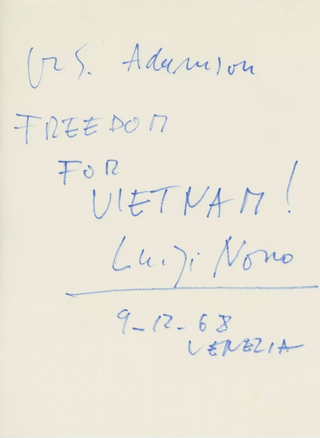 Mr S. Adamson
FREEDOM
FOR
VIETNAM!
Luigi Nono
9_12_68
VENEZIA